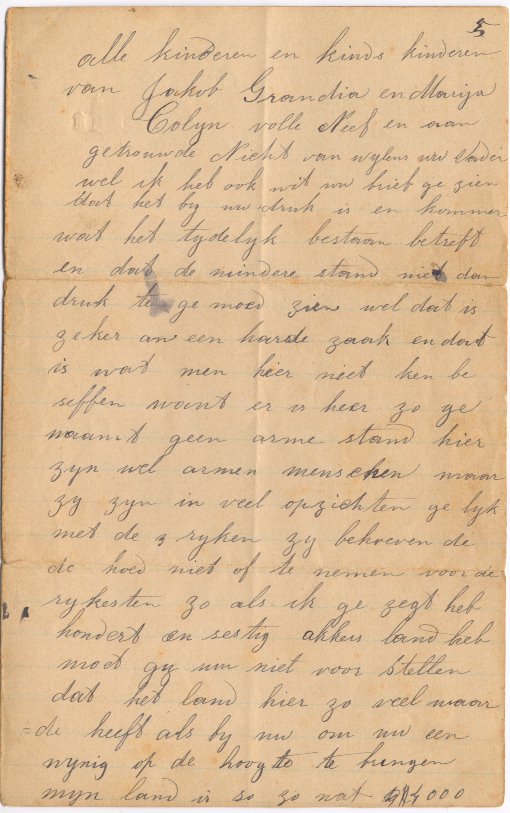 5
alle kinderen en kinds kinderen
van Jakob Grandia en Marija
Colyn volle Neef en aan
getrouwde Nicht van wylens uw Vader
wel ik heb ook uit uw brief ge zien
dat het by uw druk is en kommer
wat het tydelyk bestaan betreft
en dat de mindere stand niet dan
druk te ge moed zien wel dat is
zeker an een harde zaak en dat
is wat men hier niet ken be
seffen want er is heer zo ge
naamt geen arme stand hier
zyn wel armen menschen maar
zy zyn in veel opzichten ge lyk
met de ryken zy behoeven de
de hoed niet of te nemen voor de
rykesten zo als ik ge zegt heb
hondert en sestig akkers land heb
moet gy uw niet voor stellen
dat het land hier zo veel waar
=de heeft als by uw om uw een
wynig op de hoogte te brengen
myn land is so zo wat 000